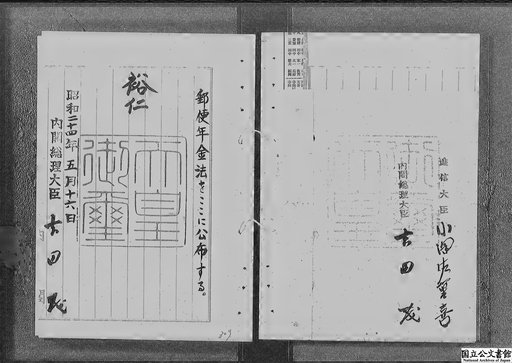 逓信大臣 小澤佐重喜
内閣総理大臣 吉田茂
郵便年金法をここに公布する。
裕仁
天皇御璽
昭和二十四年五月十六日
内閣総理大臣 吉田茂
国立公文書館
National Archives of Japan